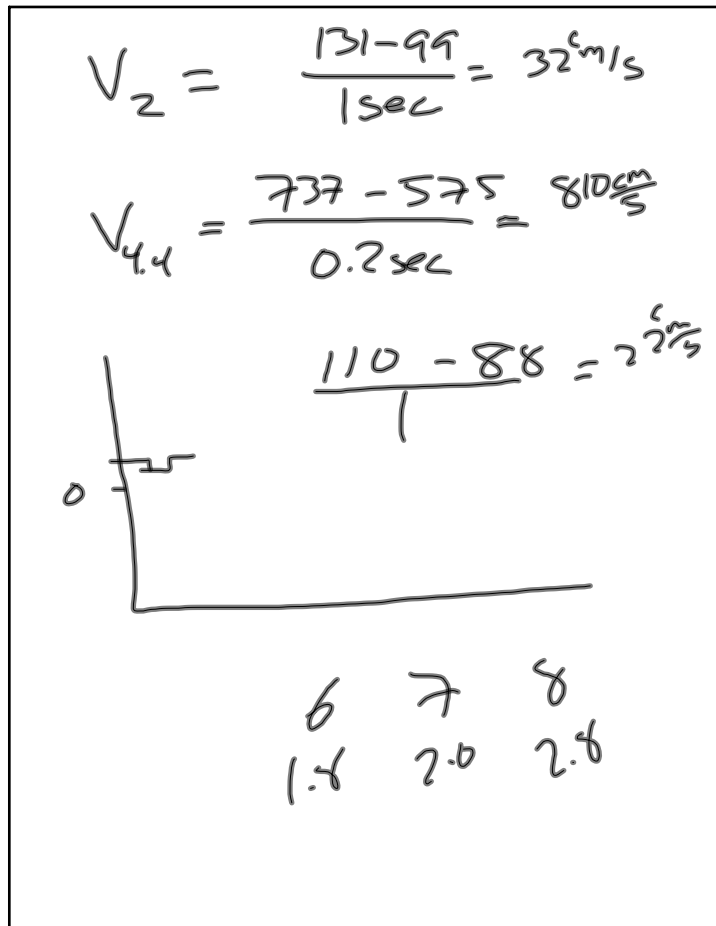 V₂ = 131-99 / 1 sec = 32 cm/s
V₄.₄ = 737 - 575 / 0.2 sec = 810 cm/s
110 - 88 / 1 = 22 cm/s
0
6 7 8
1.8 2.0 2.8